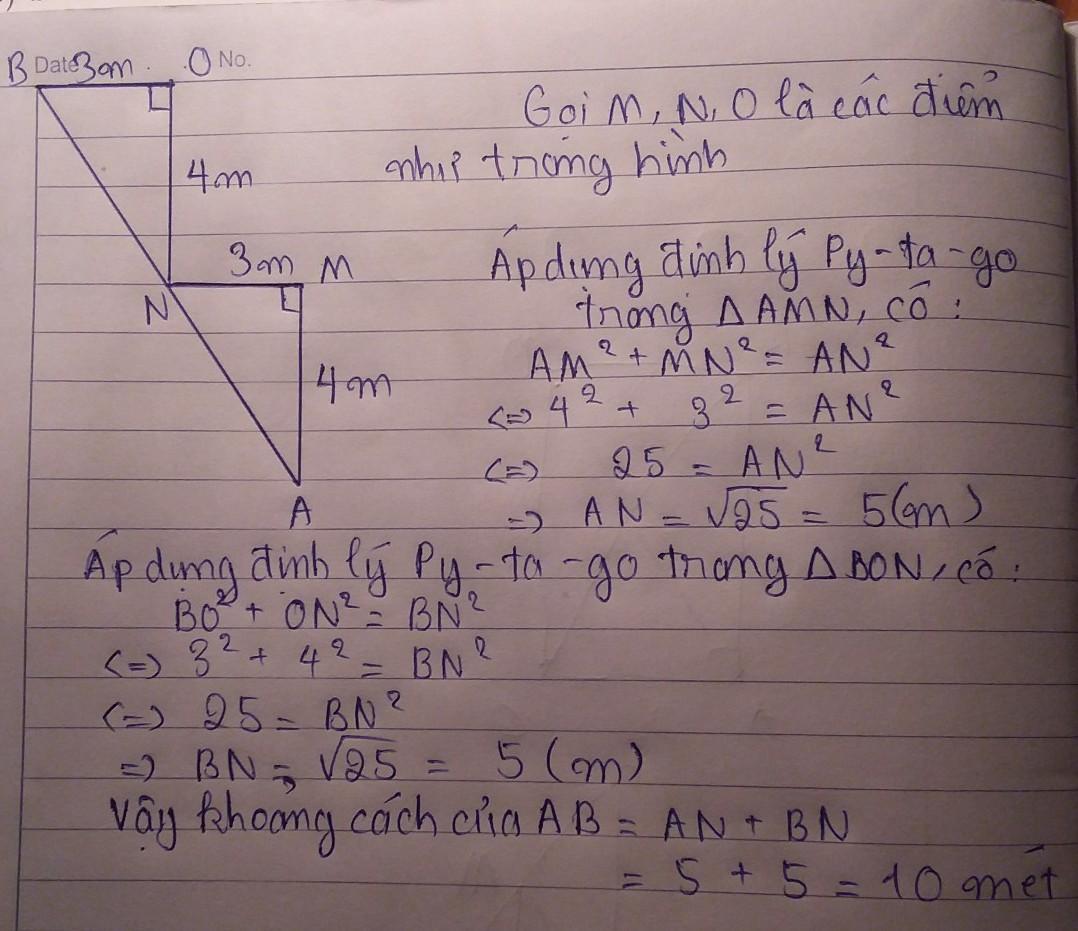 B Date 3m O No.
Gọi M, N, O là các điểm
4m như trong hình
3m M Áp dụng định lý Py-ta-go
N trong ΔAMN, có:
AM² + MN² = AN²
4m <=> 4² + 3² = AN²
<=> 25 = AN²
A => AN = √25 = 5(m)
Áp dụng định lý Py-ta-go trong ΔBON, có:
BO² + ON² = BN²
<=> 3² + 4² = BN²
<=> 25 = BN²
=> BN = √25 = 5 (m)
Vậy khoảng cách của AB = AN + BN
= 5 + 5 = 10 mét